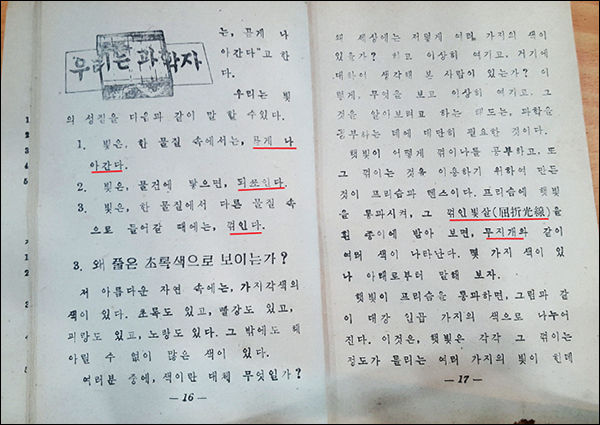 는, 곧게 나
아간다"고 한
다.
우리는 과학자
우리는 빛
의 성질을 다음과 같이 말 할 수 있다.
1. 빛은, 한 물질 속에서는, 곧게 나
아간다.
2. 빛은, 물건에 닿으면, 되쏘인다.
3. 빛은, 한 물질에서 다른 물질 속
으로 들어갈 때에는, 꺾인다.
3. 왜 풀은 초록색으로 보이는가?
저 아름다운 자연 속에는, 가지각색의
색이 있다. 초록도 있고, 빨강도 있고,
파랑도 있고, 노랑도 있다. 그 밖에도 헤
아릴 수 없이 많은 색이 있다.
여러분 중에, 색이란 대체 무엇일가?
— 16 —
왜 세상에는 저렇게 여러 가지의 색이
있을가? 하고 이상히 여기고, 거기에
대하여 생각해 본 사람이 있는가? 이
렇게, 무엇을 보고 이상히 여기고, 그
것을 알아보려고 하는 태도는, 과학을
공부하는 데에 대단히 필요한 것이다.
햇빛이 어떻게 꺾이나를 공부하고, 또
그 꺾이는 것을 이용하기 위하여 만든
것이 프리즘과 렌스이다. 프리즘에 햇빛
을 통과시켜, 그 꺾인빛살(屈折光線)을
흰 종이에 받아 보면, 무지개와 같이
여러 색이 나타난다. 몇 가지 색이 있
나 아래로부터 말해 보자.
햇빛이 프리즘을 통과하면, 그림과 같
이 대강 일곱 가지의 색으로 나누어
진다. 이것은, 햇빛은 각각 그 꺾이는
정도가 틀리는 여러 가지의 빛이 한데
— 17 —